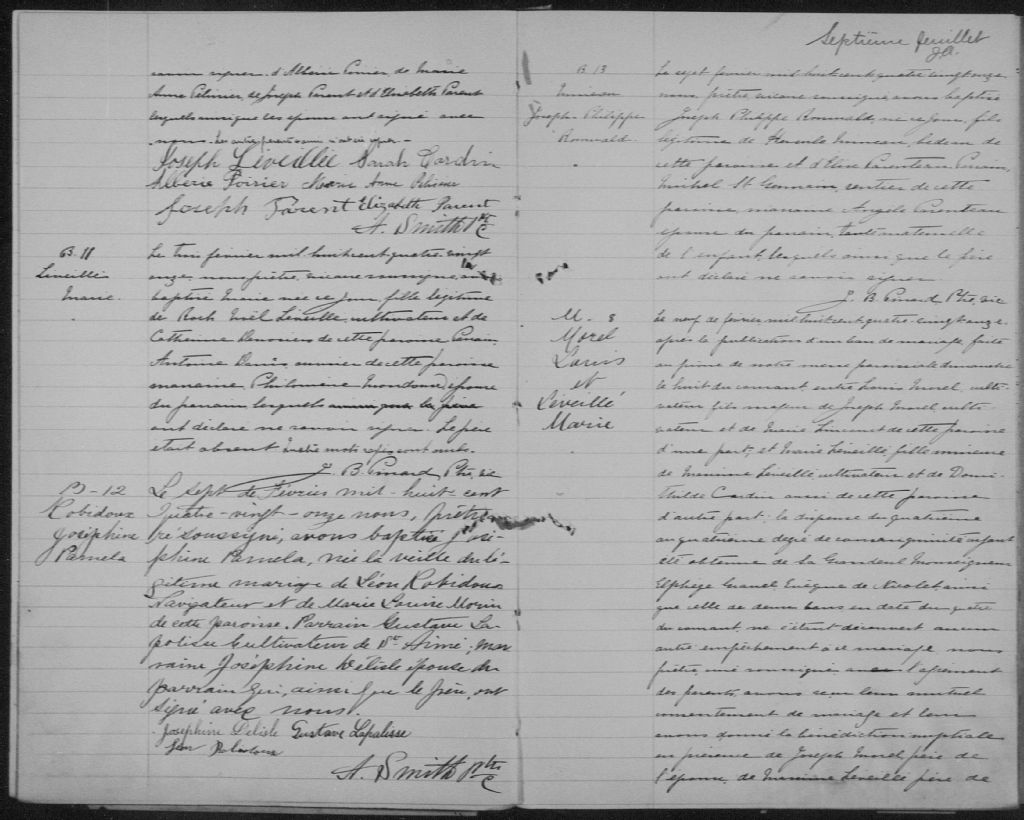 savoir signer, d'Albérie Poirier, de Marie
Anne Pélissier, de Joseph Parent et d'Elizabeth Parent
lesquels ainsi que les époux ont signé avec
nous.
Joseph Léveillée Sarah Cardin
Albérie Poirier Marie Anne Pélissier
Joseph Parent Elizabeth Parent
A. Smith Ptre
B. 11
Léveillé
Marie.
Le trois février mil huit cent quatre-vingt
onze, nous prêtre, vicaire soussigné, avons
baptisé Marie née ce jour, fille légitime
de Roch Noël Léveillé, cultivateur et de
Catherine de cette paroisse. Parrain,
Antoine ouvrier de cette paroisse
marraine, Philomène épouse
du parrain lesquels ainsi que le père
ont déclaré ne savoir signer. Le père
était absent mots rayés sont nuls.
J. B. Ptre, vic
B-12
Robidoux
Joséphine
Paméla
Le sept de Février mil-huit-cent
quatre-vingt-onze nous, prêtre
soussigné, avons baptisé José-
phine Paméla, née la veille du lé-
gitime mariage de Léon Robidoux
Navigateur et de Marie Louise Morin
de cette paroisse. Parrain Gustave La-
palisse Cultivateur de St Aimé; mar
raine Joséphine Délisle épouse du
parrain qui, ainsi que le père, ont
signé avec nous.
Josephine Delisle Gustave Lapalisse
Léon Robidoux
A. Smith Ptre
Septième feuillet
B 13
Joseph Philippe
Romuald.
Le sept février mil huit cent quatre vingt onze
nous, prêtre, vicaire soussigné avons baptisé
Joseph Philippe Romuald, né ce jour, fils
légitime de bedeau de
cette paroisse et d'Elise Parenteau. Parrain,
Michel St Germain, rentier de cette
paroisse, marraine Angèle Parenteau
épouse du parrain, tante maternelle
de l'enfant lesquels ainsi que le père
ont déclaré ne savoir signer
J. B. Ptre, vic
M-8
Morel
Louis
et
Léveillé
Marie
Le neuf de février mil huit cent quatre vingt onze
après la publication d'un ban de mariage, faite
au prône de notre messe paroissiale dimanche
le huit du courant entre Louis Morel culti-
vateur fils majeur de Joseph Morel culti-
vateur et de Marie de cette paroisse
d'une part, et Marie Léveillé fille mineure
de Maxime Léveillé cultivateur et de Domi-
thilde Cardin aussi de cette paroisse
d'autre part; la dispense du quatrième
au quatrième degré de consanguinité ayant
été obtenue de Sa Grandeur Monseigneur
Elphège Gravel Evêque de Nicolet, ainsi
que celle de deux bans en date du quatre
du courant, ne s'étant découvert aucun
autre empêchement à ce mariage, nous
prêtre, curé soussigné avec l'agrément
des parents, avons reçu leur mutuel
consentement de mariage et leur
avons donné la bénédiction nuptiale
en présence de Joseph Morel père de
l'époux, de Maxime Léveillé père de